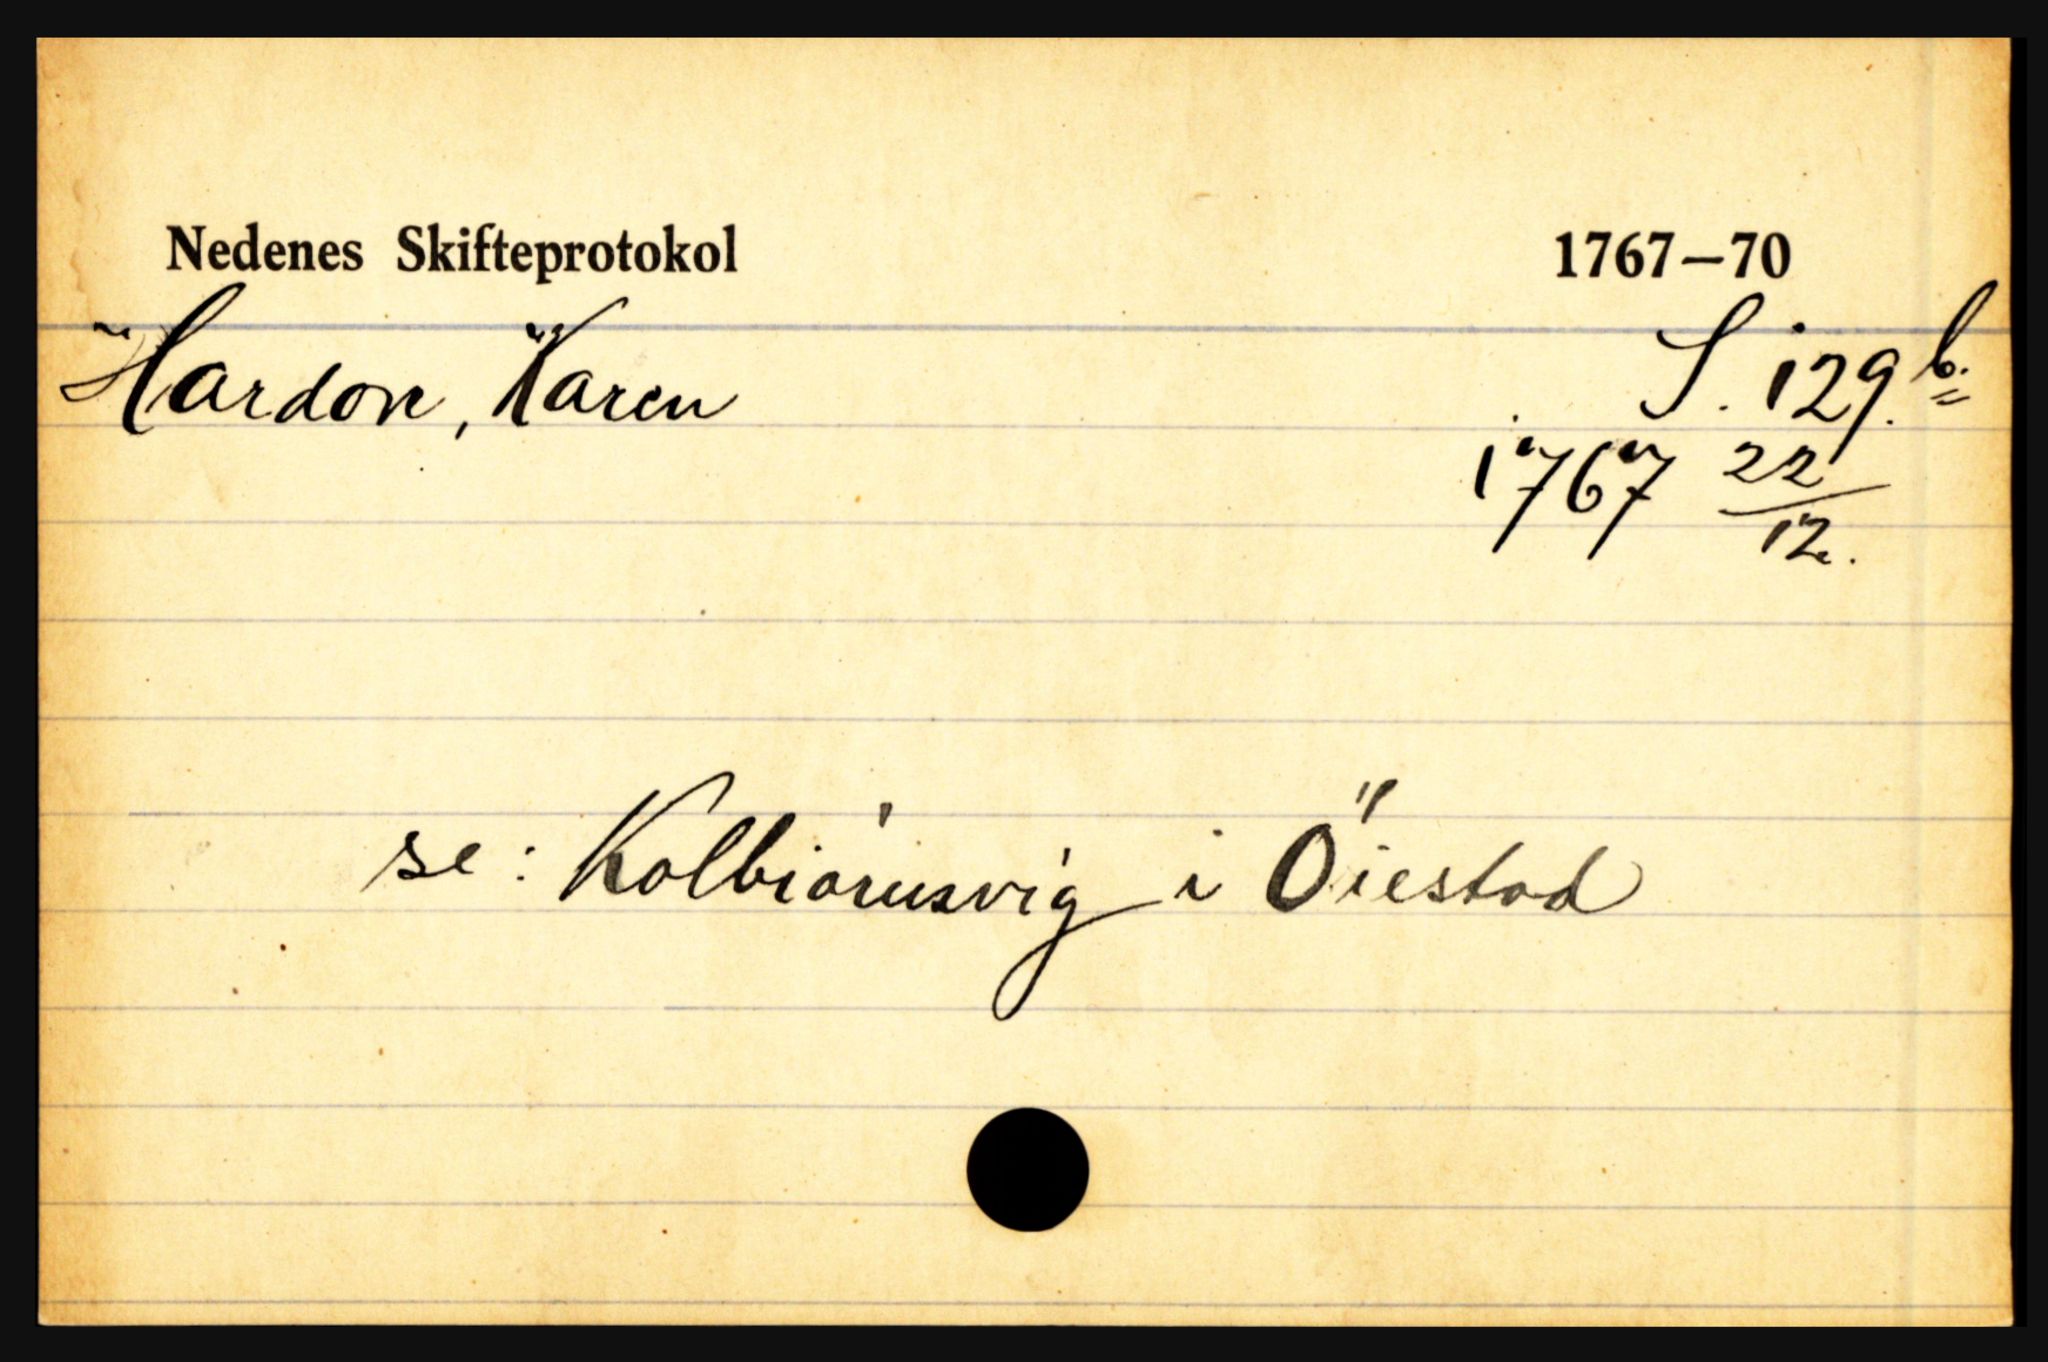 Nedenes Skifteprotokol 1767–70
Hardon, Karen S. 129 b.
1767 22/12.
se: Kolbiørnsvig i Öiestad